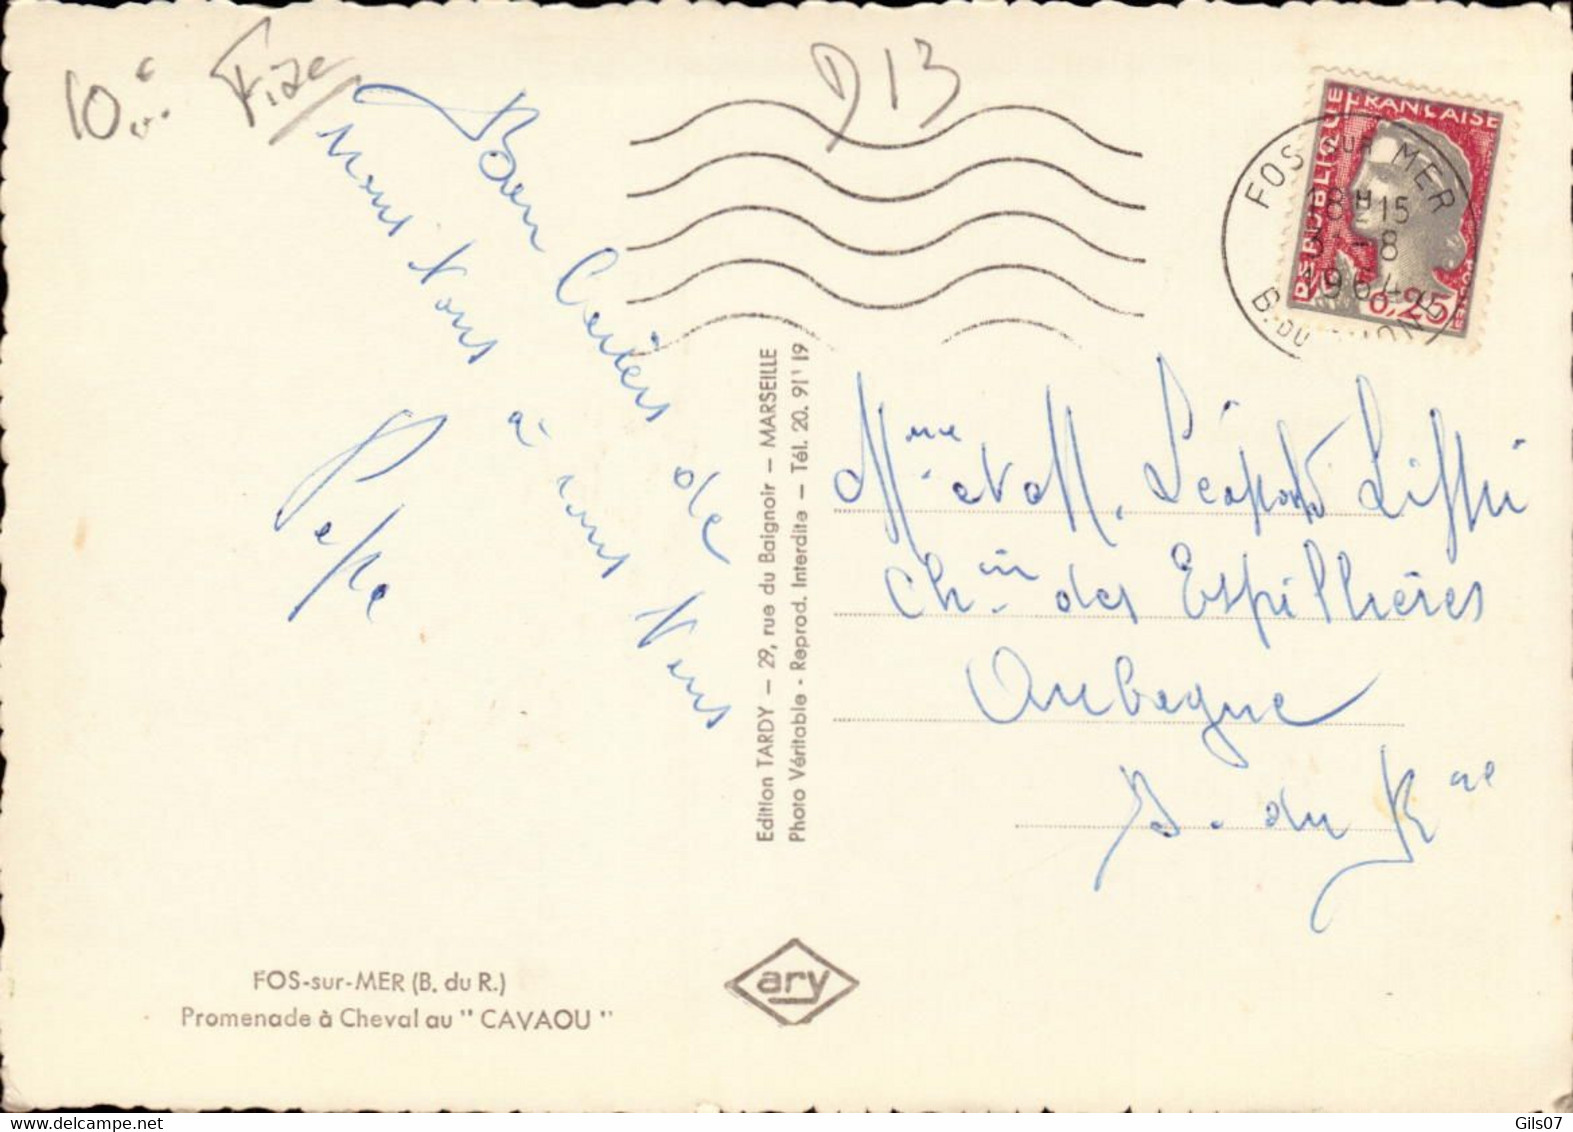 10.
D13
REPUBLIQUE FRANCAISE
0,25F
FOS SUR MER
18H15
3 -8
1964
B. DU RHONE
Bon baisers de
nous tous
à vous tous
Pepe
Edition TARDY — 29, rue du Baignoir — MARSEILLE
Photo Véritable - Reprod. Interdite — Tél. 20. 91 19
Mme et M. Léopold
Chin des Espillières
Aubagne
B. du R
ary
FOS-sur-MER (B. du R.)
Promenade à Cheval au " CAVAOU "
Gils07